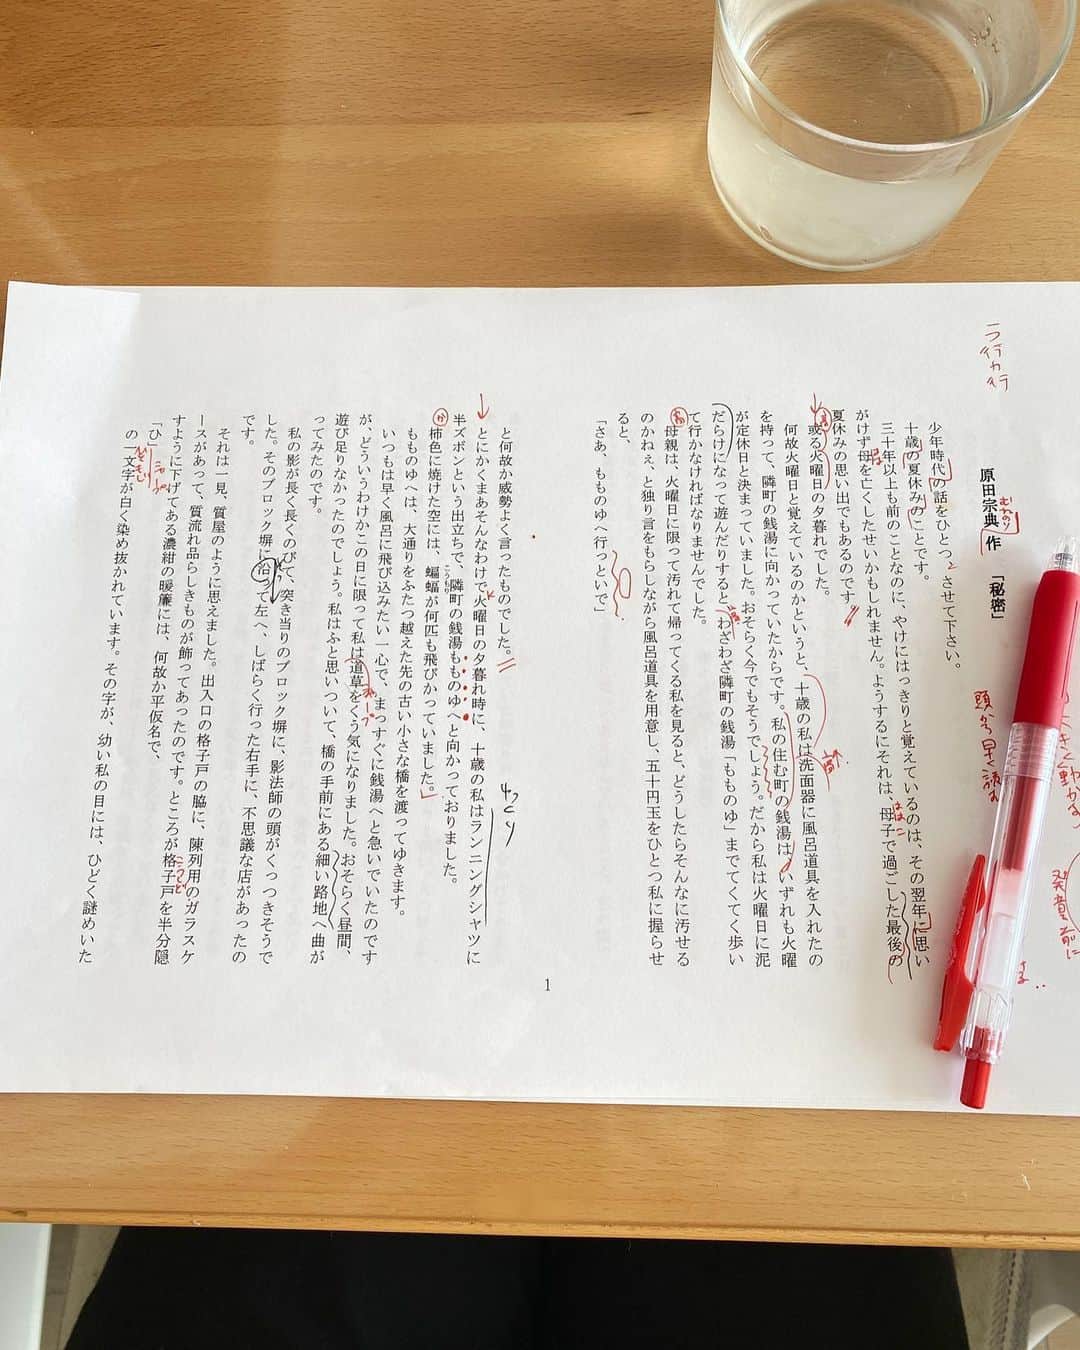 ラ行カ行
頭から早く読む
発音前に
原田宗典 作　「秘密」
むねのり
少年時代の話をひとつさせて下さい。
十歳の夏休みのことです。
三十年以上も前のことなのに、やけにはっきりと覚えているのは、その翌年に思い
がけず母を亡くしたせいかもしれません。ようするにそれは、母子で過ごした最後の
はは
ははこ
夏休みの思い出でもあるのです。
或る火曜日の夕暮れでした。
何故火曜日と覚えているのかというと、十歳の私は洗面器に風呂道具を入れたの
を持って、隣町の銭湯に向かっていたからです。私の住む町の銭湯は、いずれも火曜
が定休日と決まっていました。おそらく今でもそうでしょう。だから私は火曜日に泥
だらけになって遊んだりすると、わざわざ隣町の銭湯「もものゆ」までてくてく歩い
て行かなければなりませんでした。
母親は、火曜日に限って汚れて帰ってくる私を見ると、どうしたらそんなに汚せる
のかねぇ、と独り言をもらしながら風呂道具を用意し、五十円玉をひとつ私に握らせ
ると、
「さあ、もものゆへ行っといで」
と何故か威勢よく言ったものでした。
とにかくまあそんなわけで火曜日の夕暮れ時に、十歳の私はランニングシャツに
半ズボンという出立ちで、隣町の銭湯もものゆへと向かっておりました。
柿色に焼けた空には、蝙蝠が何匹も飛びかっていました。
か
こうもり
もものゆへは、大通りをふたつ越えた先の古い小さな橋を渡ってゆきます。
いつもは早く風呂に飛び込みたい一心で、まっすぐに銭湯へと急いでいたのです
が、どういうわけかこの日に限って私は道草をくう気になりました。おそらく昼間、
遊び足りなかったのでしょう。私はふと思いついて、橋の手前にある細い路地へ曲が
ってみたのです。
私の影が長く長くのびて、突き当りのブロック塀に、影法師の頭がくっつきそうで
した。そのブロック塀に沿って左へ、しばらく行った右手に、不思議な店があったの
です。
それは一見、質屋のように思えました。出入口の格子戸の脇に、陳列用のガラスケ
ースがあって、質流れ品らしきものが飾ってあったのです。ところが格子戸を半分隠
こうしど
すように下げてある濃紺の暖簾には、何故か平仮名で、
「ひ」
の一文字が白く染め抜かれています。その字が、幼い私の目には、ひどく謎めいた
1